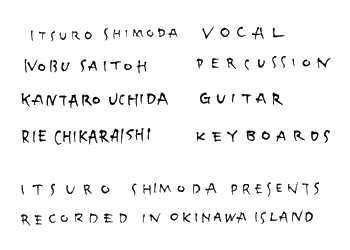 ITSURO SHIMODA VOCAL
NOBU SAITOH PERCUSSION
KANTARO UCHIDA GUITAR
RIE CHIKARAISHI KEYBOARDS
ITSURO SHIMODA PRESENTS
RECORDED IN OKINAWA ISLAND